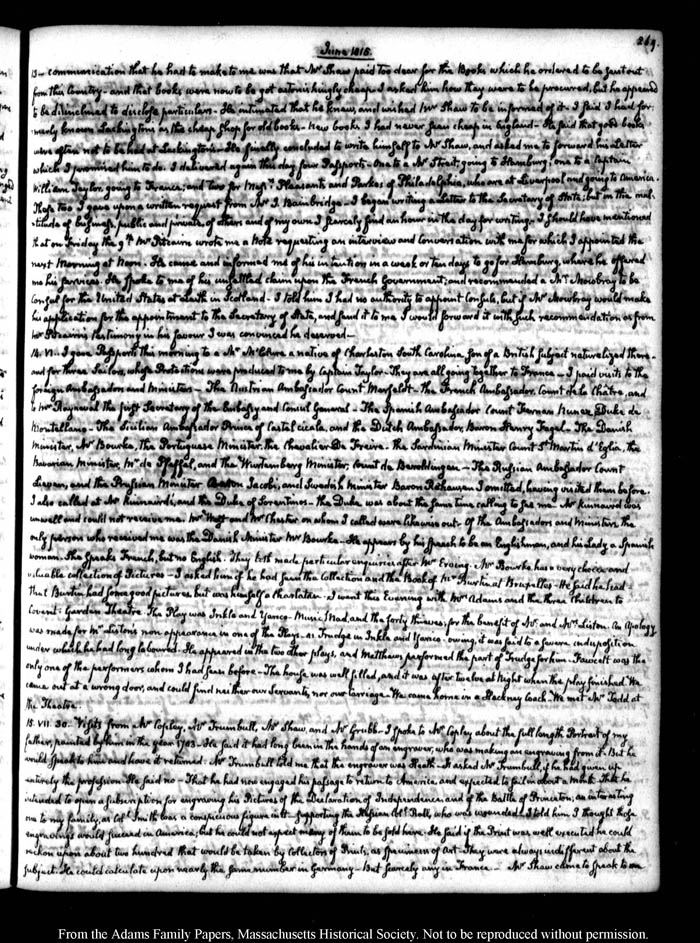 269.
June 1815.
communication that he had to make to me was that Mr Shaw paid too dear for the Books which he ordered to be sent out
from this Country - and that books were now to be got astonishingly cheap. I asked him how they were to be procured, but he appeared
to be disinclined to disclose particulars - He intimated that he knew, and wished Mr Shaw to be informed of it - I said I had for-
merly known Lackington as the cheap shop for old books - New books I had never seen cheap in England - He said that good books
were often not to be had at Lackington's - He finally concluded to write himself to Mr Shaw, and asked me to forward his Letter
which I promised him to do. I delivered again this day four Passports - One to a Mr Strait, going to Hamburg; one to a Captain
William Taylor, going to France; and two for Messrs Pleasants and Parkes of Philadelphia, who are at Liverpool and going to America.
These two I gave upon a written request from Mr J. Bainbridge - I began writing a Letter to the Secretary of State; but in the mul-
titude of business, public and private, of others and of my own I scarcely find an hour in the day for writing. I should have mentioned
that on Friday the 9th Mr Fitzairn wrote me a Note requesting an interview and conversation with me for which I appointed the
next Morning at Noon. He came and informed me of his intention in a week or ten days to go for Hamburg, where he offered
me his services. He spoke to me of his unsettled claim upon the French Government; and recommended a Mr Mowbray to be
Consul for the United States at Leith in Scotland - I told him I had no authority to appoint Consuls, but if Mr Mowbray would make
his application for the appointment to the Secretary of State, and send it to me I would forward it with such recommendation as from
testimony in his favour I was convinced he deserved -
14. VII. I gave Passports this morning to a Mr McClure a native of Charleston South Carolina, Son of a British Subject naturalized there -
and for three Sailors, whose Protections were produced to me by Captain Taylor - They are all going together to France - I paid visits to the
foreign Ambassadors and Ministers - The Austrian Ambassador Count Merfeldt - the French Ambassador, Count de la Châtre, and
to Mr Rayneval the first Secretary of the Embassy and Consul General - The Spanish Ambassador Count Fernan Nunez, Duke de
Montellano - The Sicilian Ambassador Prince of Castelcicala, and the Dutch Ambassador, Baron Henry Fagel. The Danish
Minister, Mr Bourke, the Portuguese Minister, the Chevalier De Freire - the Sardinian Minister Count St Martin d'Eglia, the
Bavarian Minister, Mr de Pfeffel, and the Wurtemberg Minister, Count de Beroldingen - The Russian Ambassador Count
Lieven, and the Prussian Minister Baron Jacobi, and Swedish Minister Baron Rehausen I omitted, having visited them before.
I also called at Mr Kinnaird's, and the Duke of Sorentino's - the Duke was about the same time calling to see me - Mr Kinnaird was
unwell and could not receive me. Mr West and Mr Chester on whom I called were likewise out. Of the Ambassadors and Ministers, the
only person who received me was the Danish Minister Mr Bourke - He appears by his speech to be an Englishman, and his Lady a Spanish
woman. She speaks French, but no English. They both made particular enquiries after Mr Erving. Mr Bourke has a very choice and
valuable collection of Pictures - I asked him if he had seen the Collection and the Book of Mr Burtin at Bruxelles - He said he had -
that Burtin had some good pictures, but was himself a Charlatan - I went this Evening with Mrs Adams and the three Children to
Covent-Garden Theatre. The Play was Inkle and Yarico - Music Mad, and the forty thieves; for the benefit of Mr and Mrs Liston. An Apology
was made for Mr Liston's non-appearance in one of the Plays, as Trudge in Inkle and Yarico - owing, it was said to a severe indisposition
under which he had long laboured - He appeared in the two other plays, and Matthews performed the part of Trudge for him. Fawcett was the
only one of the performers whom I had seen before - The house was well filled, and it was after twelve at Night when the play finished. We
came out at a wrong door, and could find neither our Servants, nor our Carriage. We came home in a Hackney Coach. We met Mr Todd at
the Theatre.
15. VII. 30. Visits from Mr Copley, Mr Trumbull, Mr Shaw, and Mr Grubb - I spoke to Mr Copley about the full length Portrait of my
father, painted by him in the year 1783 - He said it had long been in the hands of an engraver, who was making an engraving from it - But he
would speak to him and have it returned. Mr Trumbull told me that the engraver was Heath - I asked Mr Trumbull, if he had given up
entirely the profession - He said no - That he had now engaged his passage to return to America, and expected to sail in about a month. That he
intended to open a subscription for engraving his Pictures of the Declaration of Independence, and of the Battle of Princeton; an interesting
one to my family, as Coll Smith was a conspicuous figure in it - supporting the Hessian Coll Rall, who was wounded - I told him I thought those
engravings would succeed in America; but he could not expect many of them to be sold here. He said if the Print was well executed he could
reckon upon about two hundred that would be taken by Collectors of Prints, as specimens of Art - They were always indifferent about the
subject. He could calculate upon nearly the same number in Germany - But scarcely any in France - Mr Shaw came to speak to me
From the Adams Family Papers, Massachusetts Historical Society. Not to be reproduced without permission.